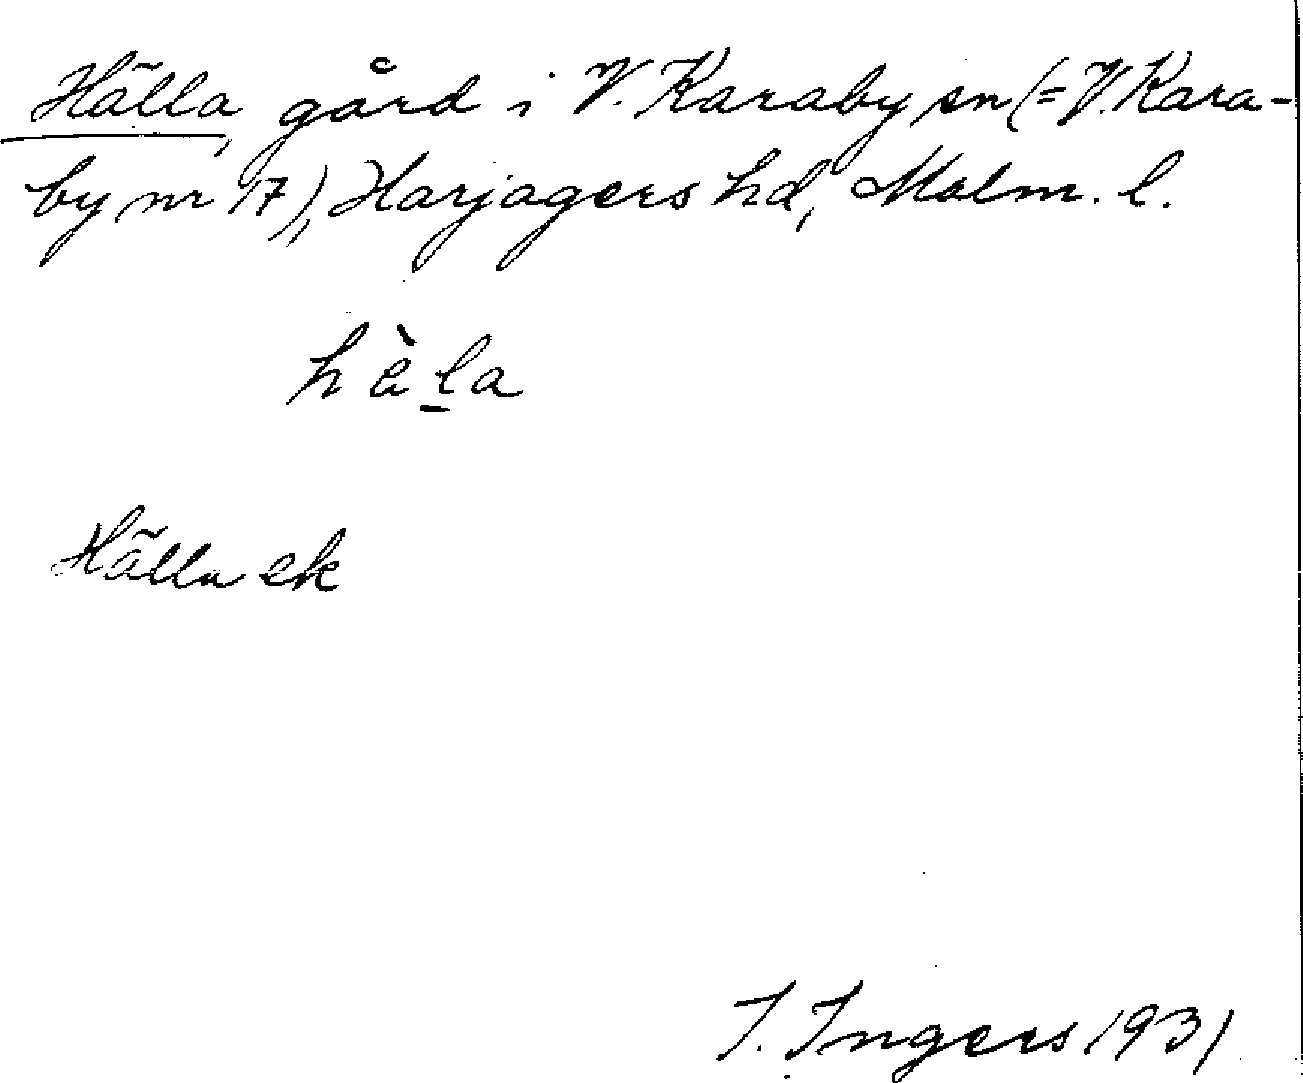 Hälla, gård i V. Karaby sn (= V. Kara-
by nr 17), Harjagers hd, Malm. l.
hàl̲a
Hälla ek
I. Ingers 1931